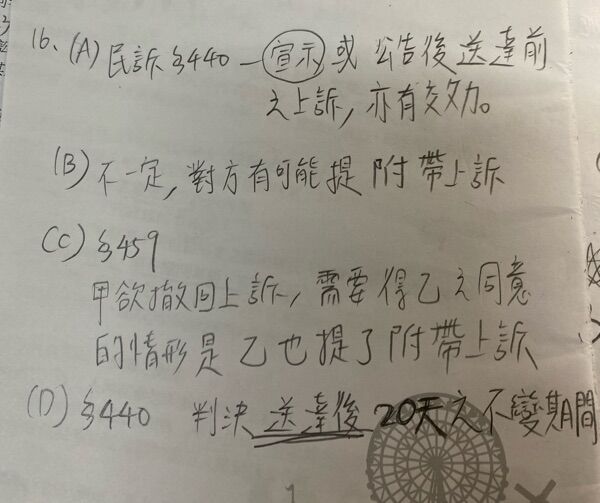 16、(A) 民訴§440 — 宣示 或 公告後 送達前
之上訴，亦有效力。
(B) 不一定，對方有可能提 附帶上訴
(C) §459
甲欲撤回上訴，需要得乙之同意
的情形是 乙也提了附帶上訴
(D) §440 判決 送達後 20天之不變期間
1